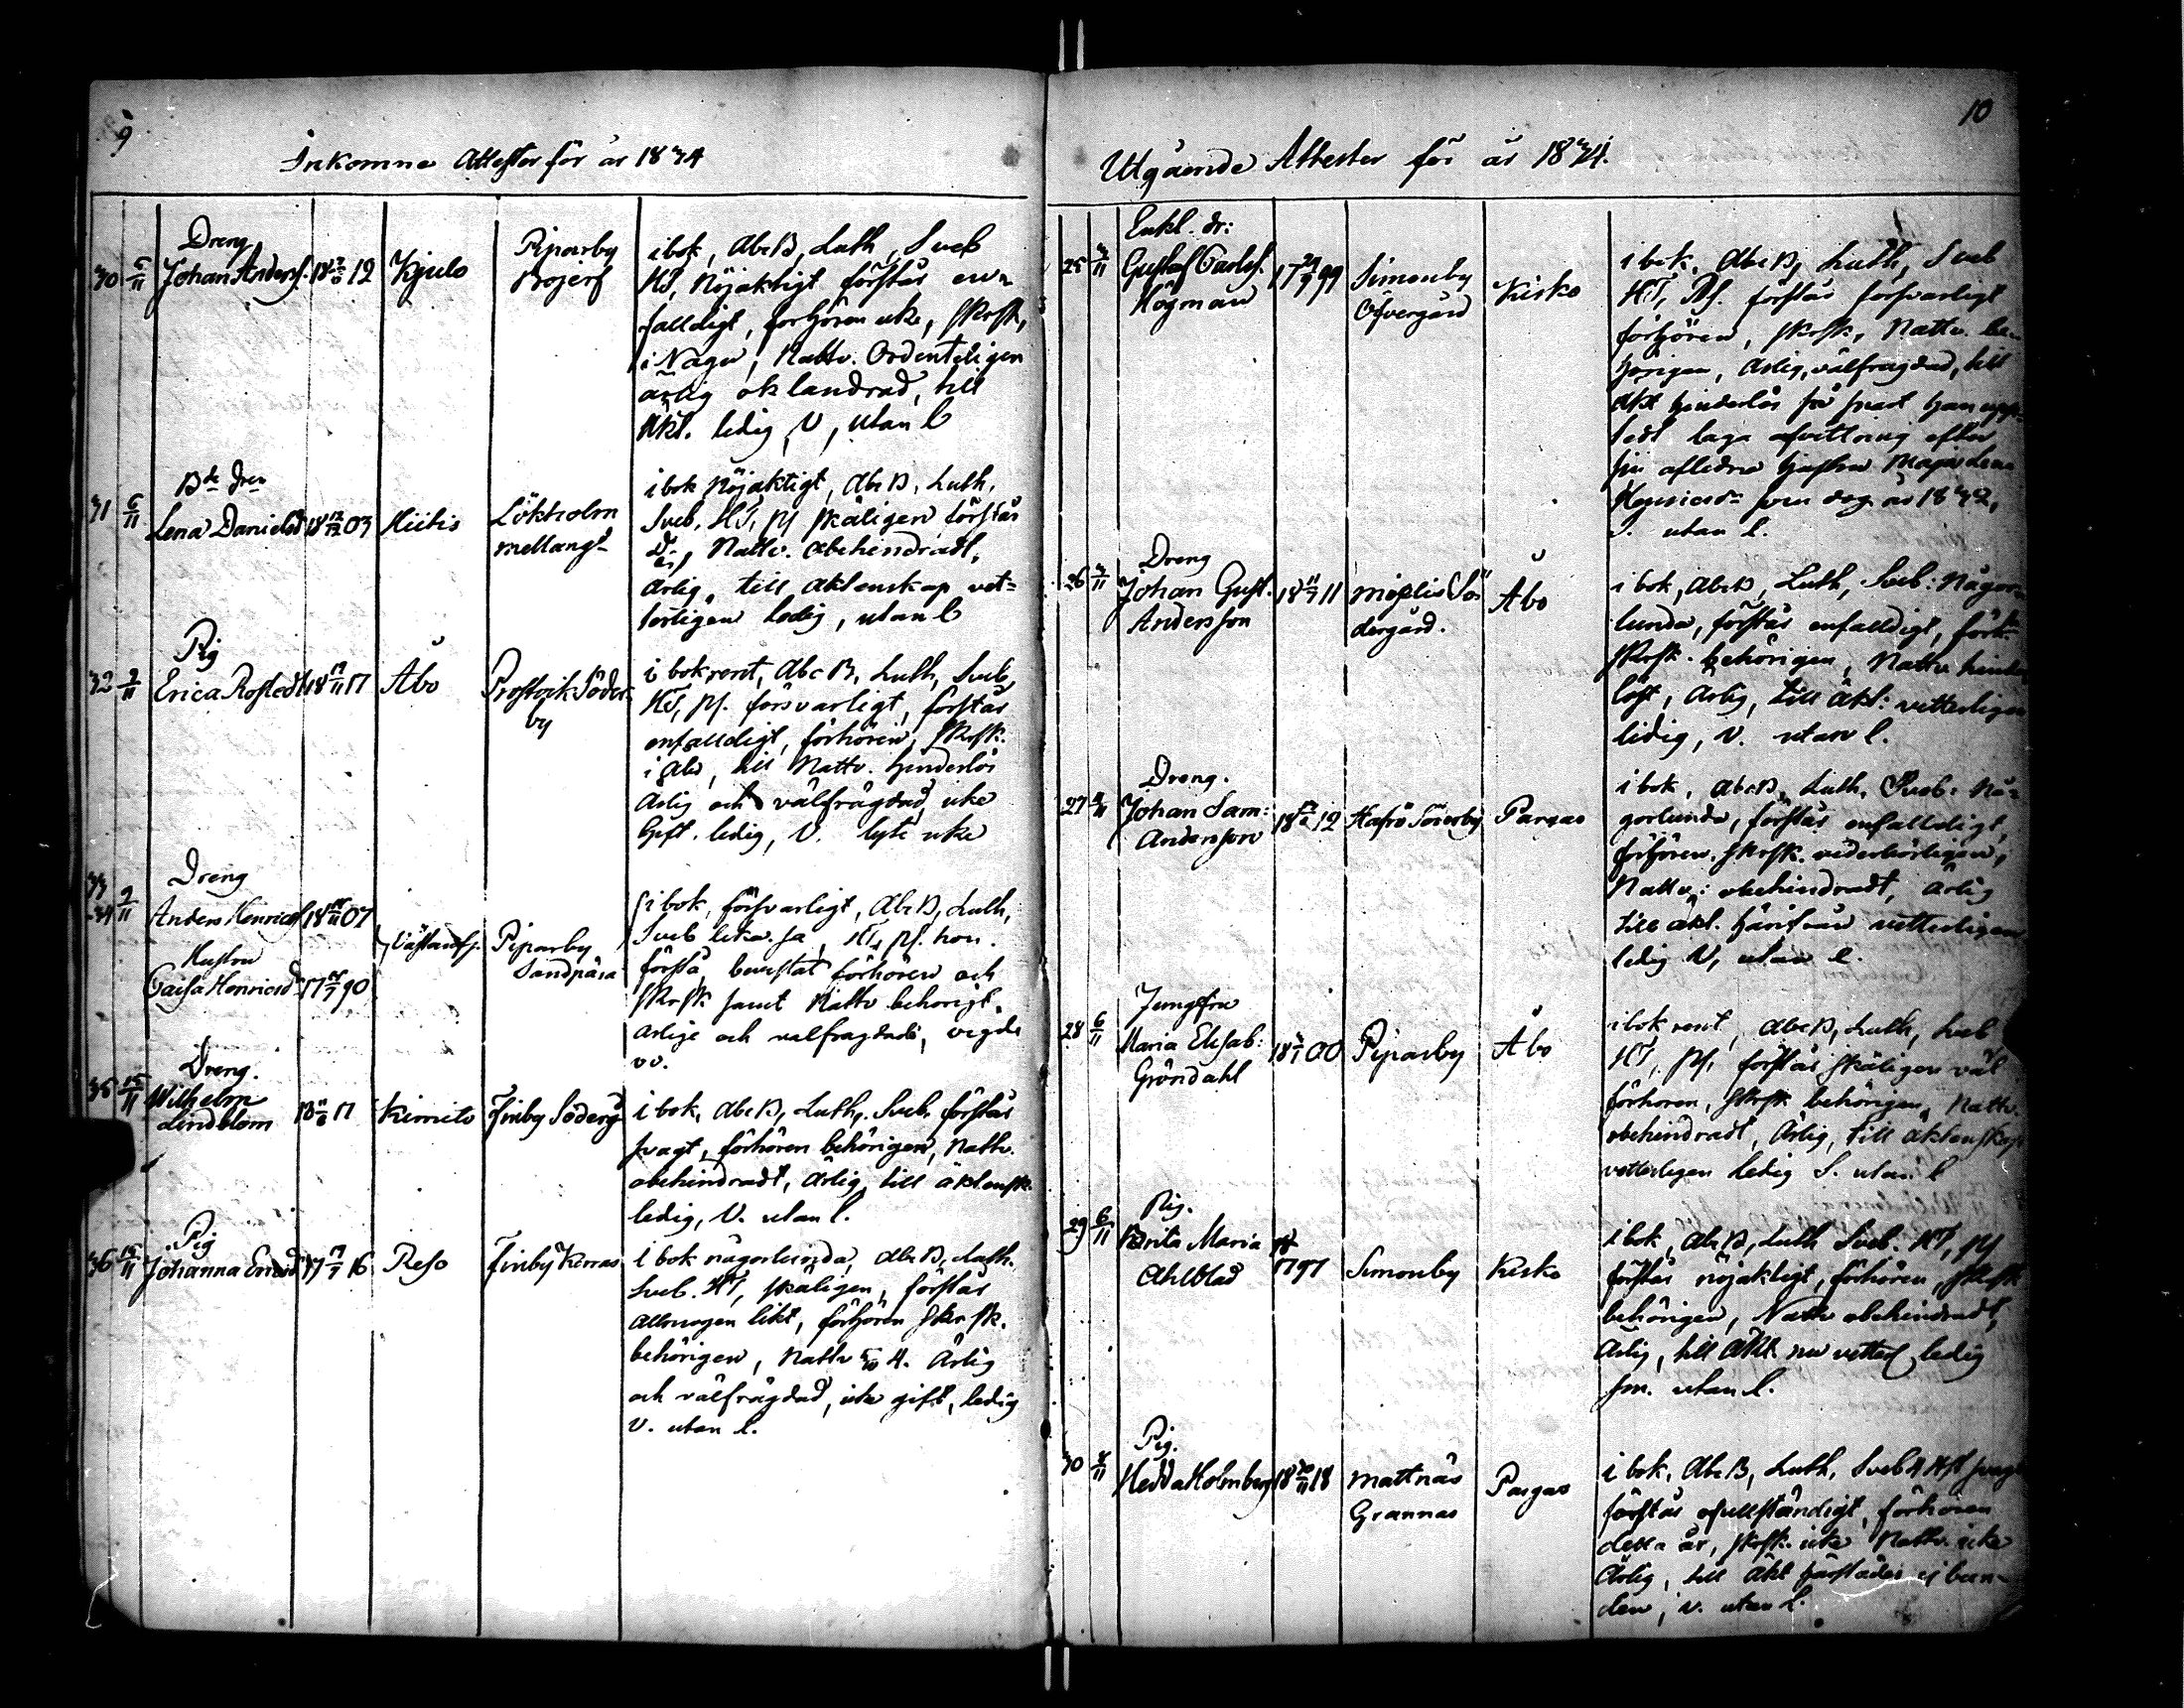 9
Inkomne Attester för år 1834
Dreng
30 5/11 Johan Anders. 18 12 Kjulo Piparby
Bojers
i bok, AbcB, Luth, Sveb
HT, Nöjaktigt förstår en=
falldigt, förhören icke, skrsk,
i Nagu, Nattv. Ordenteligen
ärlig ok landrad, till
Äkt. ledig, V, utan l
Bde Dren
31 6/11 Lena Danielsd 18 03 Hiitis Lökholm
mellang
i bok Nöjaktigt, AbcB, Luth,
Sveb, HT, ps skäligen förstår
Nattv. obehindradt,
ärlig, till äktenskap vet=
terligen ledig, utan l
Pig
32 7/11 Erica Rostedt 18 17 Åbo Prostvik Söder
by
i bok rent, AbcB, Luth, Sveb,
HT, ps. försvarligt, förstår
enfalldigt, förhören, skrsk.
i Åbo, till Nattv. hinderlös
Ärlig och välfrägdad icke
Gift. ledig, V. lyte icke
33 Dreng
34 9/11 Anders Henricss 18 07
Hustru Västanf. Piparby
Sandpära
Caisa Henricsd 17 90
i bok, försvarligt, AbcB, Luth,
Sveb leka. ja, HT, ps. hon.
förstå, bevistat förhören och
skrsk samt Nattv behörigt.
ärlige och välfragdade, vigde
vv.
Dreng.
35 15/11 Wilhelm
Lindblom 18 17 Kimito Finby Söderg
i bok, AbcB, Luth, Sveb förstår
svagt, förhören behörigen, Nattv.
obehindradt, Ärlig, till äktensk.
ledig, V. utan l.
Pig
36 15/11 Johanna Ericsd 17 16 Reso Finby Kerras
i bok någorlunda, AbcB, Luth.
Sveb. HT, skäligen, förstår
allmogen likt, förhören skrsk.
behörigen, Nattv 4. Ärlig
och välfrägdad, icke gift, ledig
V. utan l.
10
Utgående Attester för år 1834.
Enkl. dr:
25 3/11 Gustaf Carlss.
Högman 17 99 Simonby
Öfvergård Kisko
i bok, AbcB, Luth, Sveb
HT, Ps. förstår försvarligt
förhören, skrsk, Nattv. be
hörigen, Ärlig, välfragdad, till
äkt hinderlös så snart han upp
sedt laga afvittring efter
sin aflidna hustru Maja Lena
som dog år 1832,
utan l.
Dreng
26 3/11 Johan Gust.
Andersson 18 11 Möplis Sö
dergård. Åbo
i bok, AbcB, Luth, Sveb: Någor
lunda, förstår enfalldigt, förh
skrsk. behörigen, Nattv hinder
löst, Ärlig, till äkt: vetterligen
ledig, V. utan l.
Dreng.
27 4/11 Johan Sam:
Andersson 18 12 Hafrö Söderby Pargas
i bok, AbcB, Luth, Sveb: Nå=
gorlunda, förstår enfalldigt,
förhören. skrsk. vederbörligen,
Nattv: obehindradt, ärlig
till äkt. härifrån vetterligen
ledig V, utan l.
Jungfru
28 6/11 Maria Elisab:
Gröndahl 18 00 Piparby Åbo
i bok rent, AbcB, Luth, Sveb
HT, ps, förstår skäligen väl
förhören, skrsk behörigen, Nattv.
obehindradt, Ärlig, till äktenskap
vetterligen ledig S. utan l
Pig.
29 6/11 Brita Maria
Ahlblad 1797 Simonby Kisko
i bok, AbcB, Luth Sveb. HT, ps
förstår nöjaktigt, förhören, skrsk
behörigen, Nattv obehindradt,
Ärlig, till Äkt. nu vetterl ledig
utan l.
Pig.
30 8/11 Hedda Holmberg 18 18 Mattnäs
Grannas Pargas
i bok, AbcB, Luth, Sveb HT svagt
förstår ofullständigt, förhören
detta år, skrsk icke Nattv. icke
Ärlig, till Äkt härstädes ej bun=
den, v. utan l.